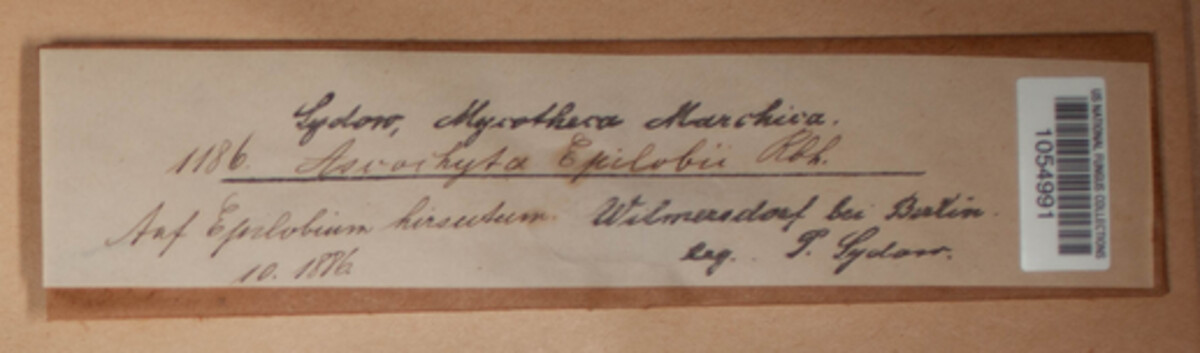 Sydow, Mycotheca Marchica.
1186. Ascochyta Epilobii Rbh.
Auf Epilobium hirsutum. Wilmersdorf bei Berlin.
10. 1886 leg. P. Sydow.
US NATIONAL FUNGUS COLLECTIONS
1054991